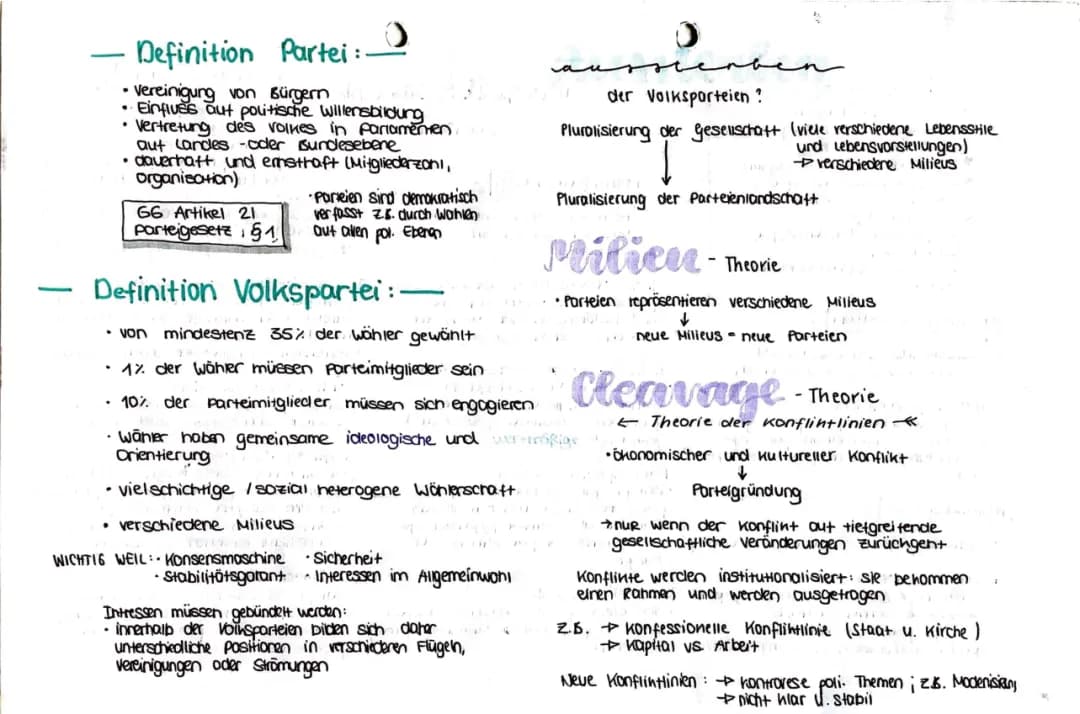 — Definition Partei: —
• Vereinigung von Bürgern
• Einfluss auf politische Willensbildung
• Vertretung des Volkes in Parlamenten
auf Landes -oder Bundesebene
• dauerhaft und ernsthaft (Mitgliederzahl,
Organisation)
GG Artikel 21
Parteigesetz, §1
•Parteien sind demokratisch
verfasst z.B. durch Wahlen
auf allen pol. Ebenen
— Definition Volkspartei: —
• von mindestenz 35% der Wähler gewählt
• 1% der Wähler müssen Parteimitglieder sein
• 10% der Parteimitglieder müssen sich engagieren
• Wähler haben gemeinsame ideologische und wertmäßige
Orientierung
• vielschichtige / sozial heterogene Wählerschaft
• verschiedene Milieus
WICHTIG WEIL: • Konsensmaschine • Sicherheit
• Stabilitätsgarant • Interessen im Allgemeinwohl
Intressen müssen gebündelt werden:
• innerhalb der Volksparteien bilden sich dafür
unterschiedliche Positionen in verschiedenen Flügeln,
Vereinigungen oder Strömungen
aussterben
der Volksparteien?
Pluralisierung der Gesellschaft (viele verschiedene Lebensstile
und Lebensvorstellungen)
→ verschiedene Milieus
↓
Pluralisierung der Parteienlandschaft
Milieu - Theorie
• Parteien repräsentieren verschiedene Milieus
↓
neue Milieus = neue Parteien
Cleavage - Theorie
← Theorie der Konfliktlinien ←
• ökonomischer und kultureller Konflikt
↓
Parteigründung
→ nur wenn der Konflikt auf tiefgreifende
gesellschaftliche Veränderungen zurückgeht
Konflikte werden institutionalisiert: sie bekommen
einen Rahmen und werden ausgetragen
z.B. → Konfessionelle Konfliktlinie (Staat u. Kirche)
→ Kapital vs. Arbeit
Neue Konfliktlinien: → kontrorese poli. Themen; z.B.
→ nicht klar u. stabil